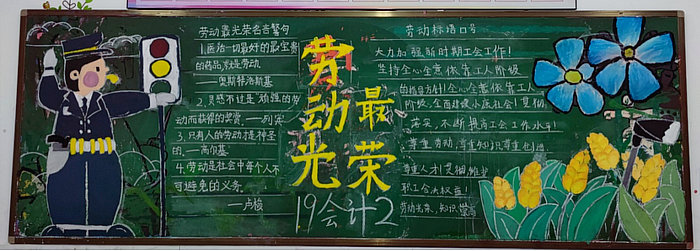 劳动最光荣名言警句
1.医治一切最好的最宝贵
的药品,就是劳动
——奥斯特洛斯基
2.灵感不过是"顽强的劳
动而获得的奖赏"——列宾
3.只有人的劳动才是神圣
的.——高尔基
4.劳动是社会中每个人不
可避免的义务.
——卢梭
劳动最光荣
19会计2
劳动标语口号
大力加强新时期工会工作!
坚持全心全意依靠工人阶级
的指导方针!全心全意依靠工人
阶级,全面建设小康社会!
落实,不断提高工会工作水平!
尊重劳动,尊重知识,尊重创造,
尊重人才!
职工合法权益!
劳动光荣、知识崇高